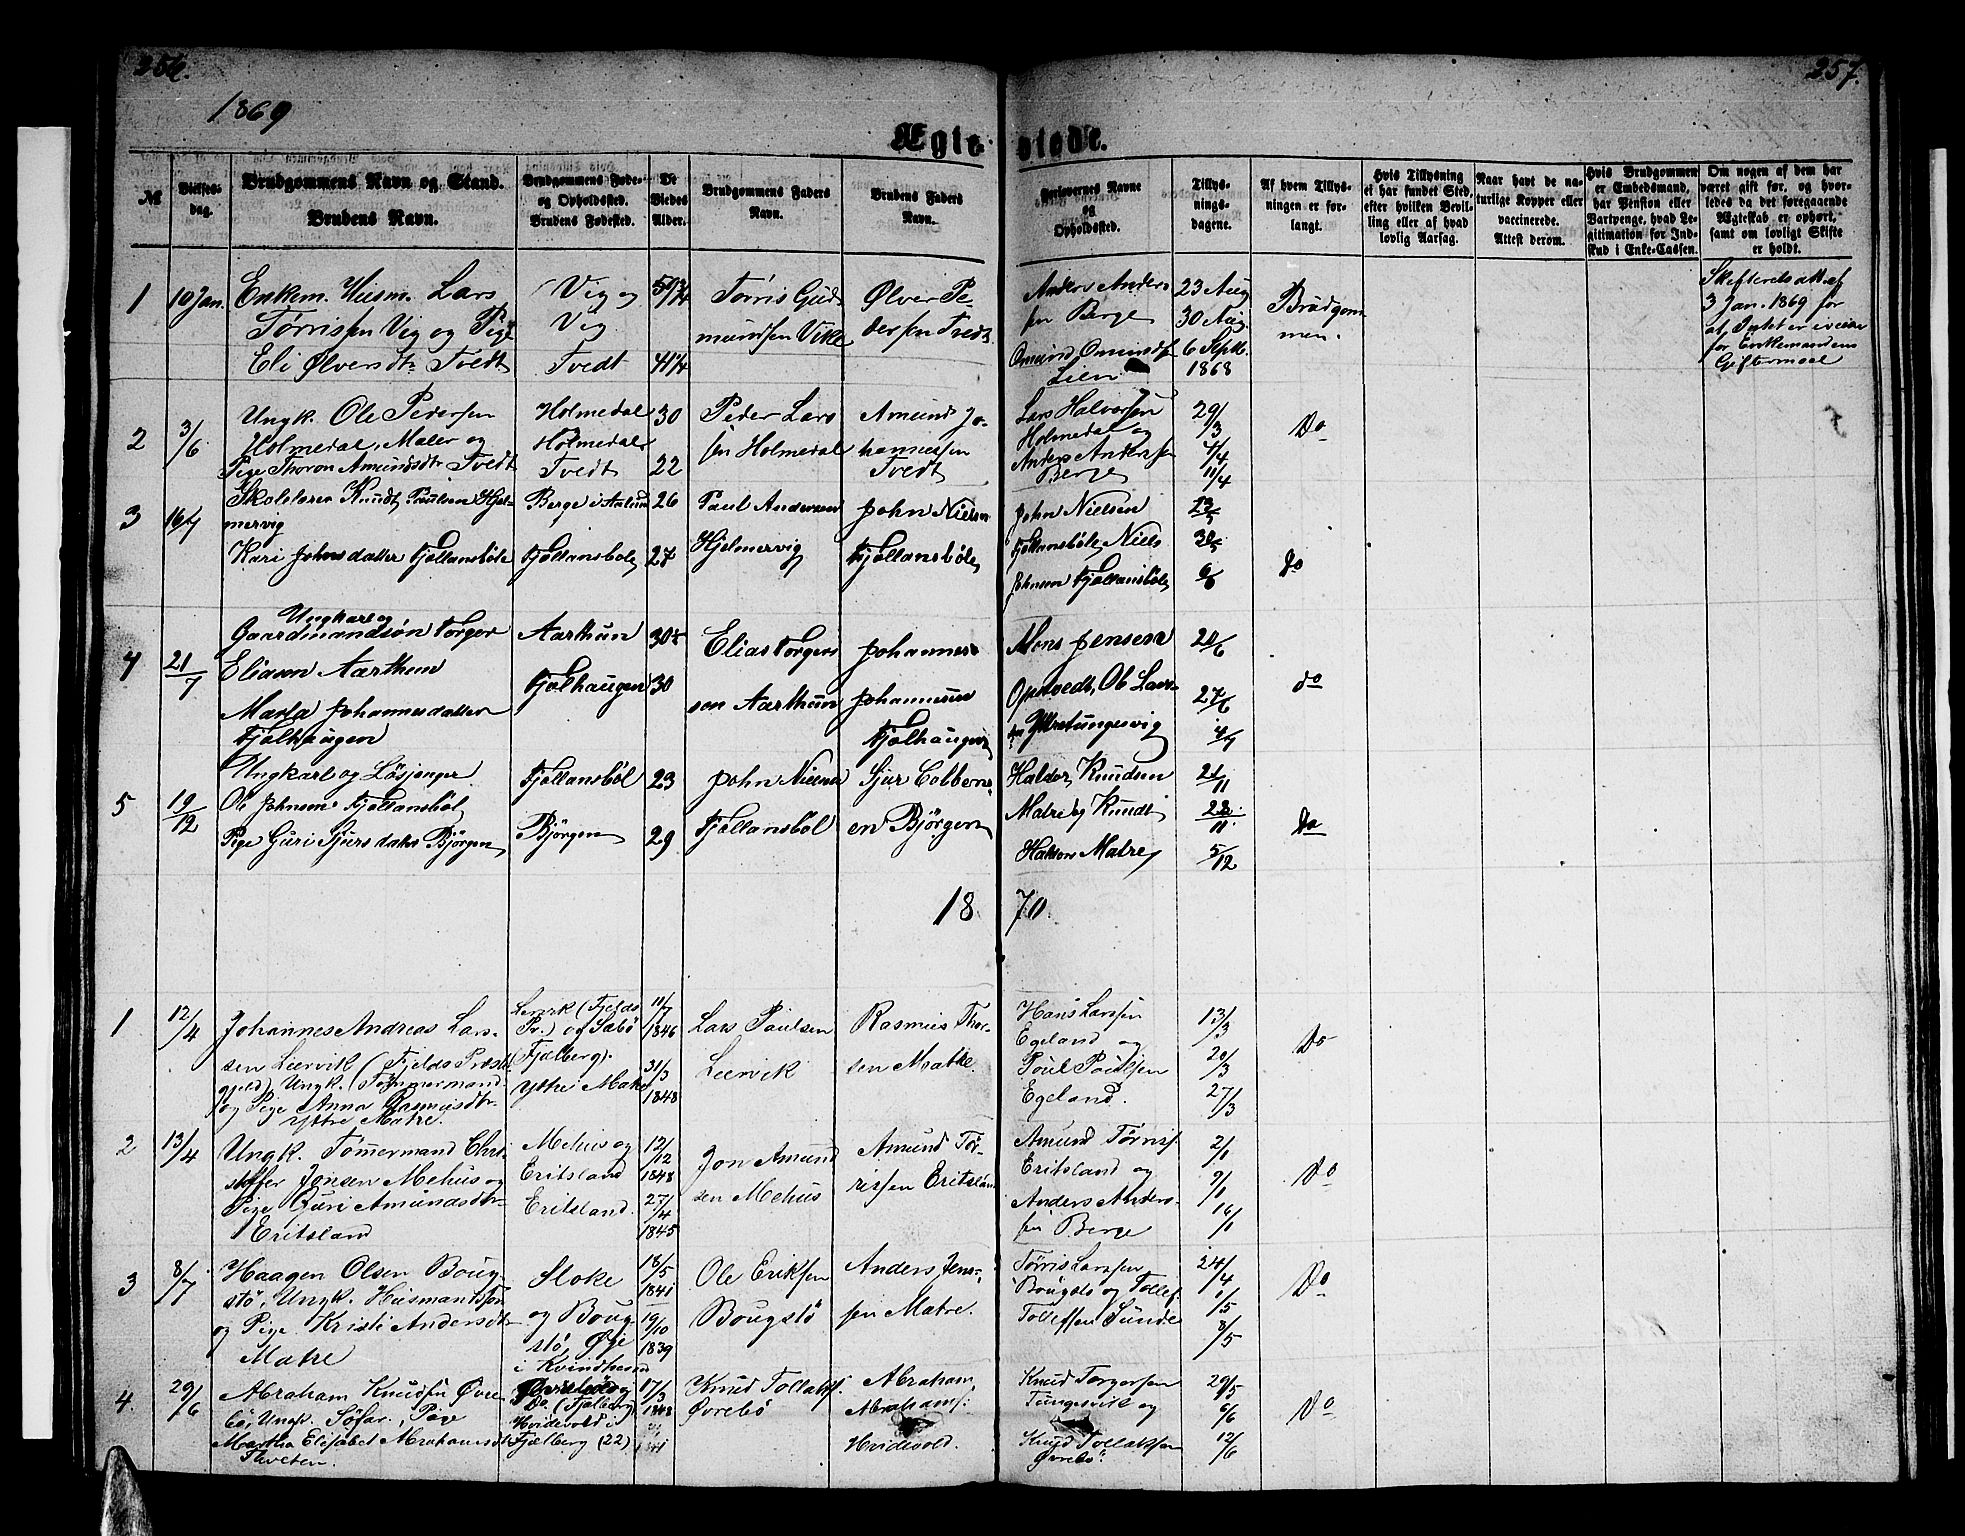 256.
257.
1869
Ægteviede.
№
Vielses-
dag.
Brudgommens Navn og Stand.
Brudens Navn.
Brudgommens Føde-
og Opholdssted.
Brudens Fødested.
De
Viedes
Alder.
Brudgommens Faders
Navn.
Brudens Faders
Navn.
Forlovernes Navne
og
Opholdssted.
Tillys-
nings-
dagene.
Af hvem Tillys-
ningen er for-
langt.
Hvis Tillysning
ei har fundet Sted,
efter hvilken Bevil-
ling eller af hvad
lovlig Aarsag.
Naar havt de na-
turlige Kopper eller
vaccinerede.
Attest derom.
Hvis Brudgommen
er Embedsmand,
har Pension eller
Vartpenge, hvad Le-
gitimation for Ind-
skud i Enke-Cassen.
Om nogen af dem har
været gift før, og hvor-
ledes da det foregaaende
Ægteskab er ophørt,
samt om lovligt Skifte
er holdt.
1
10 Jan.
Enkem. Husm. Lars
Tørrissen Vig og Pige
Eli Ølversdtr Tvedt
Vig og
Vig
Tvedt
41 1/4
Tørris Gud
mundsen Vike
Ølver Pe-
dersen Tvedt
Anders Anders
sen Berge
Omund Omunds
Lien
23 Aug
30 Aug.
6 Septb.
1868
Brudgom
men.
Skifteretsattest af
3 Jan. 1869 for
at Intet er iveien
for Enkemandens
Giftermaal
2
3/6
Ungk. Ole Pedersen
Holmedal, Maler og
Pige Thoron Amundsdtr Tvedt
Holmedal
Holmedal
Tvedt
30
22
Peder Lars
sen Holmedal
Amund Jo-
hannessen
Tvedt
Lars Halvorsen
Holmedal og
Anders Andersen
Berge
29/3
4/4
11/4
Do
3
16/7
Skolelærer Knudt Paulsen Hjel-
mervig
Kari Johnsdatter Fjellansbøle
Berge i Aalund
Fjollansbøle
26
27
Paul Andersen
Hjelmervig
John Nielsen
Fjollansbøle
John Nielsen
Fjollansbøle, Niels
Johnsen Fjollansbøle
23/5
30/5
6/6
Do
4
21/7
Ungkarl og
Gaardmandsøn Torger
Eliasen Aarthun
Marta Johannesdatter
Fjælhaugen
Aarthun
Fjælhaugen
30½
30
Elias Torgers
sen Aarthun
Johannes
Johannesen
Fjælhaugen
Mons Jensen
Opsvedt, Ob Lars-
sen Ytretungesvig
20/6
27/6
4/7
do
5
19/12
Ungkarl og Løsjenger
Ole Johnsen Fjollansbøl
Pige Guri Sjursdatter Bjørgen
Fjollansbøl
Bjørgen
23
29
John Nielsen
Fjollansbøl
Sjur Colbens-
en Bjørgen
Haldor Knudsen
Matre og Knudt
Haldors Matre
21/11
28/11
5/12
Do
1870
1
12/4
Johannes Andreas Lars-
sen Leervik (Fjelds Præste
gjeld) Ungk. (Tømmermand
og Pige Anna Rasmusdtr
Ytre Matre.
Lervik (Fjelds
Pr.) og Sæbø
Fjælberg).
Ytre Matre
11/7
1846
31/3
1848
Lars Paulsen
Leervik
Rasmus Thor-
sen Matre
Hans Larssen
Egeland og
Poul Poulsen
Egeland.
13/3
20/3
27/3
Do
2
13/4
Ungk. Tømmermand Chri-
stoffer Jonsen Mehus og
Pige Guri Amundsdtr
Eritsland
Mehus og
Eritsland
Eritsland.
12/12
1848
27/4
1845
Jon Amund
sen Mehus
Amund Tør-
rissen Eritsland
Amund Tørriss.
Eritsland og
Anders Anders-
sen Berge
2/1
9/1
16/1
Do
3
8/7
Haagen Olsen Boug-
stø, Ungk. Husmandssøn
og Pige Kristi Andersdtr
Matre
Sloke
og Boug-
stø, Øye
i Kvindherred
18/5
1841
19/10
1839
Ole Eriksen
Bougstø
Anders Jens-
sen Matre.
Tørris Larssen
Bougstø og Tollef
Tollefsen Sunde
24/4
1/5
8/5
Do
4
29/6
Abraham Knudsen Øvre
bø, Ungk. Søfar., Pige
Martha Elisabet Abrahamsdtr
Tveten.
Do. (Fjelberg
Hvidevold i
Fjælberg (22)
17/3
1848
Knud Tollaks.
Øvrebø
Abraham
Abrahams.
Hvidevold.
Knud Torgersen
Tungesvik og
Knud Tollaksen
Øvrebø
29/5
6/6
12/6
Do